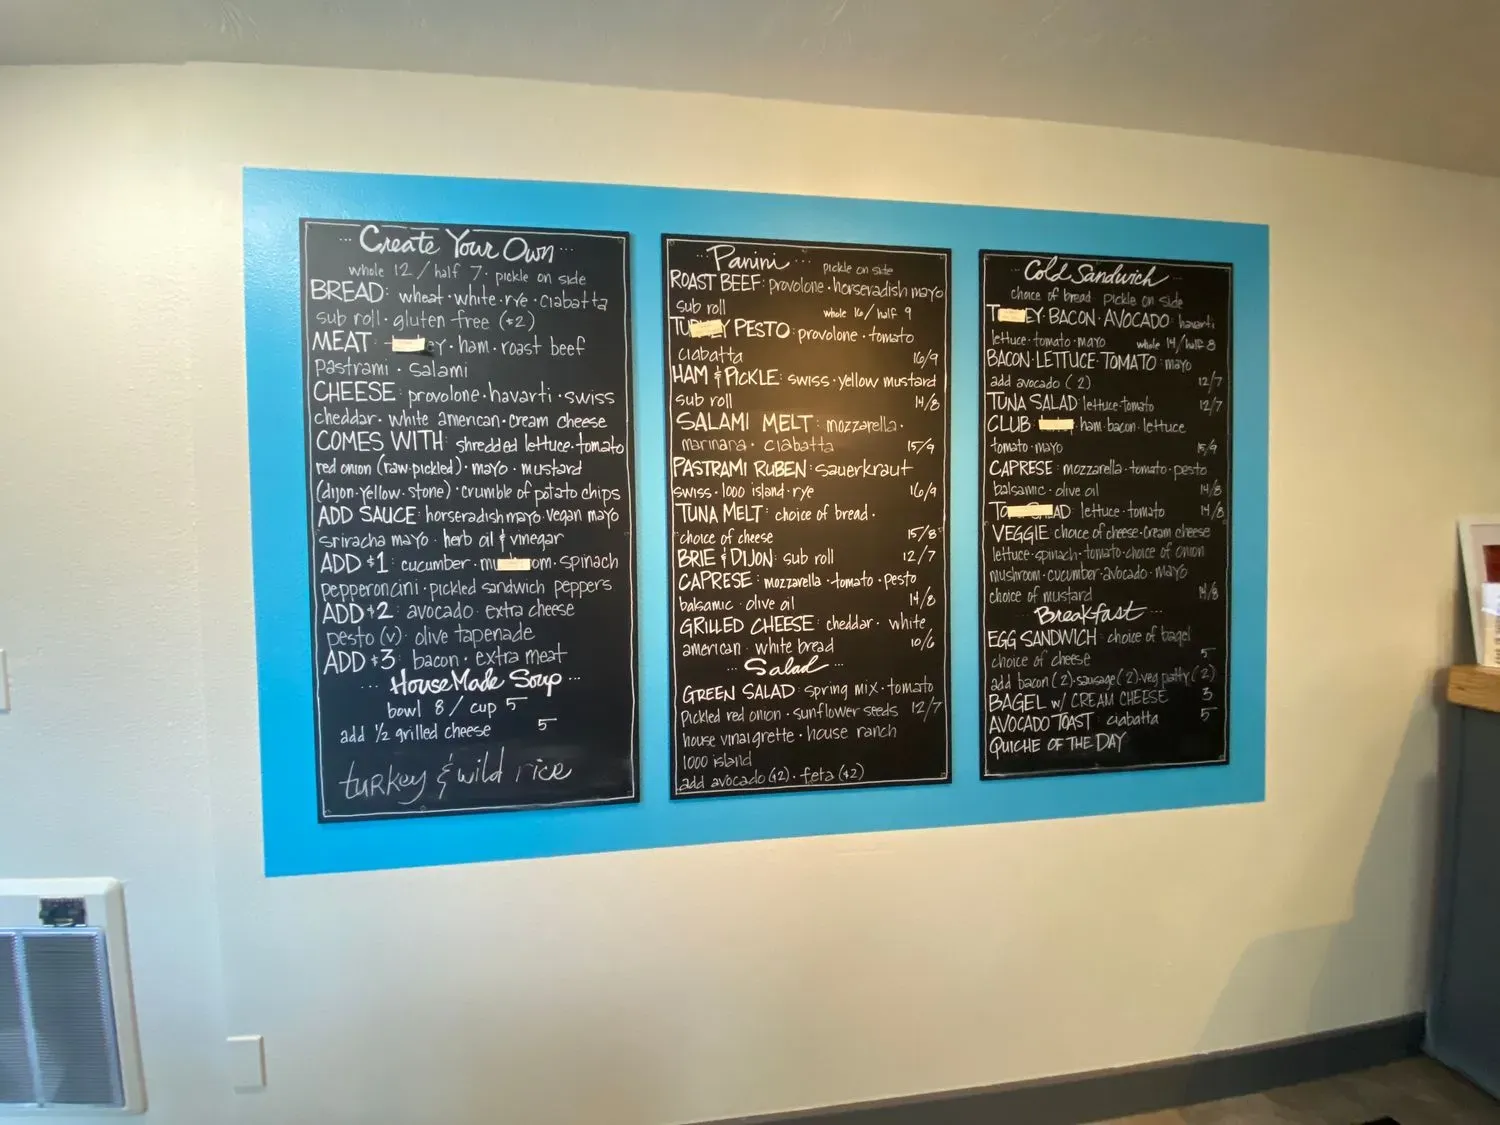 Create Your Own
whole 12 / half 7 · pickle on side
BREAD: wheat · white · rye · ciabatta
sub roll · gluten free (+2)
MEAT · ham · roast beef
pastrami · salami
CHEESE: provolone · havarti · swiss
cheddar · white american · cream cheese
COMES WITH: shredded lettuce · tomato
red onion (raw · pickled) · mayo · mustard
(dijon · yellow · stone) · crumble of potato chips
ADD SAUCE: horseradish mayo · vegan mayo
sriracha mayo · herb oil & vinegar
ADD $1: cucumber · spinach
pepperoncini · pickled sandwich peppers
ADD $2: avocado · extra cheese
pesto (v) · olive tapenade
ADD $3: bacon · extra meat
··· HouseMade Soup ···
bowl 8 / cup 5
add 1/2 grilled cheese 5
turkey & wild rice
Panini ··· pickle on side
ROAST BEEF: provolone · horseradish mayo
sub roll whole 16 / half 9
PESTO: provolone · tomato
ciabatta 16/9
HAM & PICKLE: swiss · yellow mustard
sub roll 14/8
SALAMI MELT: mozzarella ·
marinara · ciabatta 15/9
PASTRAMI RUBEN: sauerkraut
swiss · 1000 island · rye 16/9
TUNA MELT: choice of bread ·
choice of cheese 15/8
BRIE & DIJON: sub roll 12/7
CAPRESE: mozzarella · tomato · pesto
balsamic · olive oil 14/8
GRILLED CHEESE: cheddar · white
american · white bread 10/6
··· Salad ···
GREEN SALAD: spring mix · tomato
pickled red onion · sunflower seeds 12/7
house vinaigrette · house ranch
1000 island
add avocado (+2) · feta (+2)
Cold Sandwich
choice of bread pickle on side
BACON · AVOCADO: havarti
lettuce · tomato · mayo whole 14 / half 8
BACON · LETTUCE · TOMATO: mayo
add avocado (2) 12/7
TUNA SALAD: lettuce · tomato 12/7
CLUB · ham · bacon · lettuce
tomato · mayo 15/9
CAPRESE: mozzarella · tomato · pesto
balsamic · olive oil 14/8
lettuce · tomato 14/8
VEGGIE: choice of cheese · cream cheese
lettuce · spinach · tomato · choice of onion
mushroom · cucumber · avocado · mayo
choice of mustard 14/8
Breakfast ···
EGG SANDWICH: choice of bagel
choice of cheese 5
add bacon (2) · sausage (2) · veg patty (2)
BAGEL w/ CREAM CHEESE 3
AVOCADO TOAST: ciabatta 5
QUICHE OF THE DAY